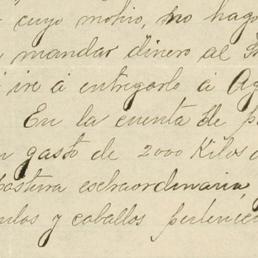 cuyo motivo, no hago
mandar dinero al
iré á entregarlo á
En la cuenta de
gasto de 2000 Kilos
pastura extraordinaria
y caballos